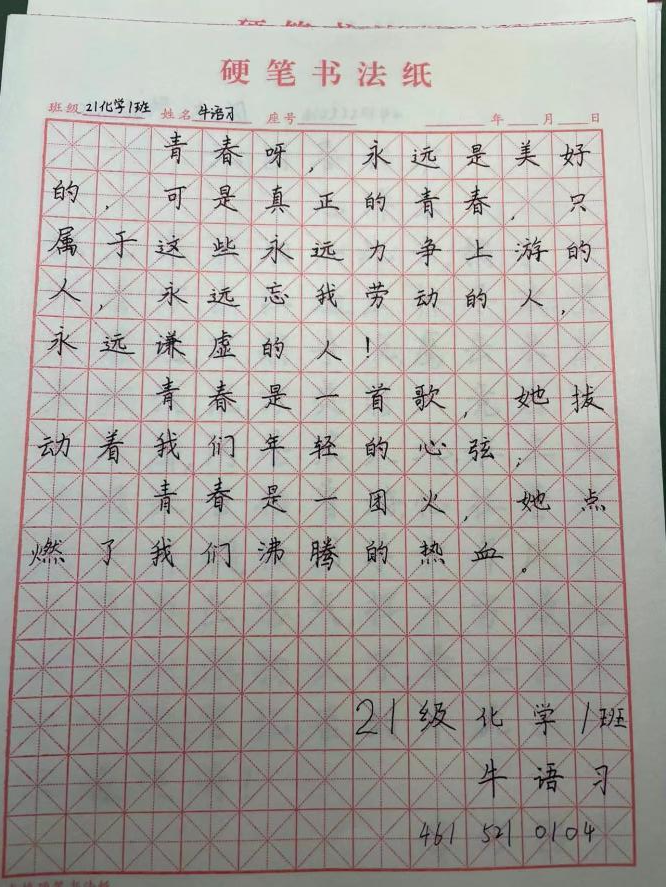 硬笔书法纸
班级 21化学1班 姓名 牛语习 座号 年 月 日
青春呀，永远是美好
的，可是真正的青春，只
属于这些永远力争上游的
人，永远忘我劳动的人，
永远谦虚的人！
青春是一首歌，她拔
动着我们年轻的心弦；
青春是一团火，她点
燃了我们沸腾的热血。
21级化学1班
牛语习
461 521 0104